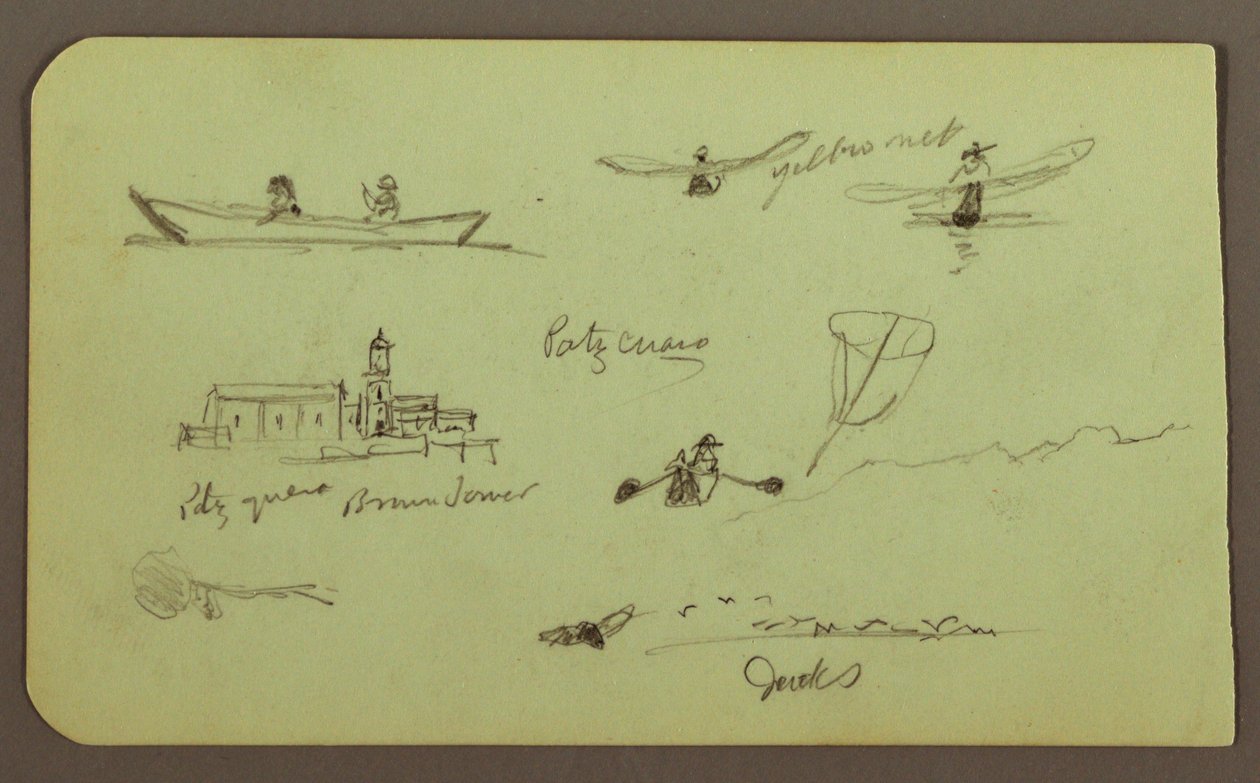 yelbro net
Patzcuaro
Patzquaro Brown Tower
Ducks